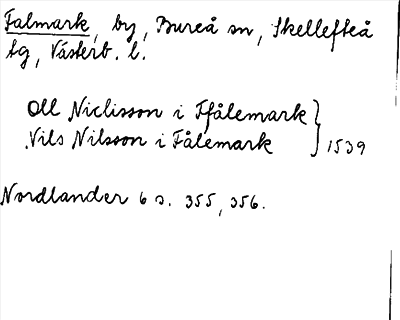 Falmark, by, Bureå sn, Skellefteå
tg, Västerb. l.
Oll Niclisson i Ffålemark
Nils Nilsson i Fålemark } 1539
Nordlander 6 s. 355, 356.